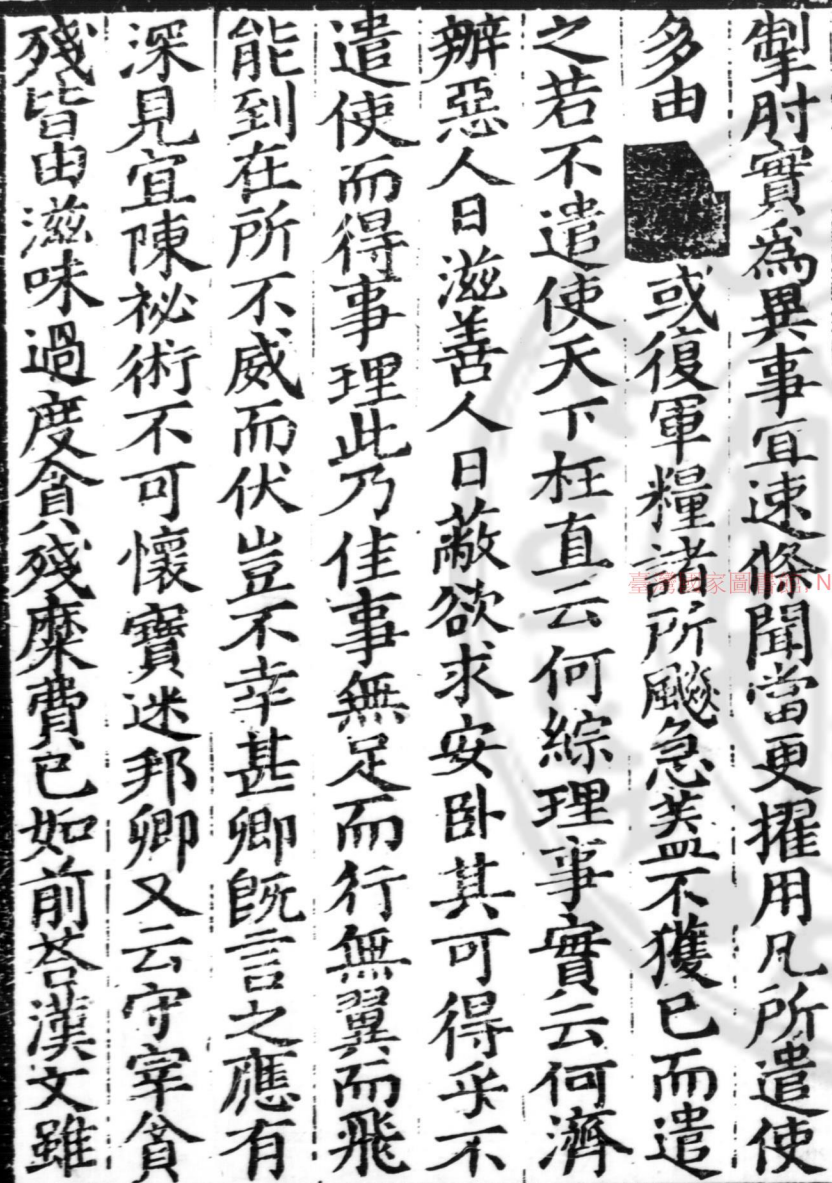 掣肘實為異事宜速條聞當更擢用凡所遣使
多由或復軍糧諸所飈急葢不獲已而遣
之若不遣使天下枉直云何綜理事實云何濟
辦惡人日滋善人日蔽欲求安卧其可得乎不
遣使而得事理此乃佳事無足而行無翼而飛
能到在所不威而伏豈不幸甚卿旣言之應有
深見宜陳祕術不可懷寶迷邦卿又云守宰貪
殘皆由滋味過度貪殘糜費已如前荅漢文雖
臺灣國家圖書館.N